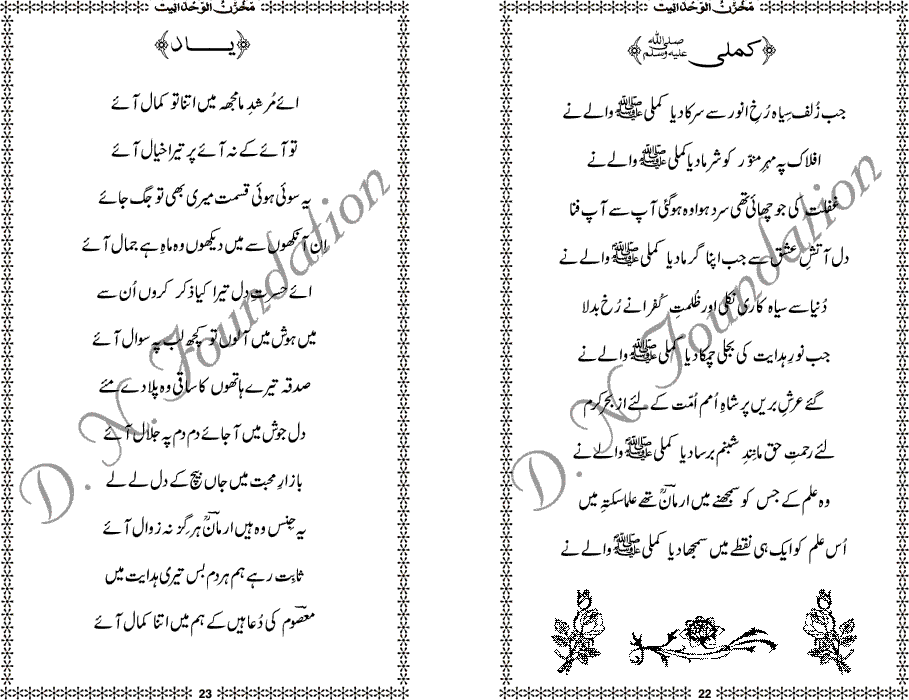 مَخزنُ الوَحدَانیت
﴿کملی ﷺ﴾
جب زُلف سِیاہ رُخِ انور سے سرکا دیا کملی ﷺ والے نے
افلاک پہ مہرِ منوّر کو شرما دیا کملی ﷺ والے نے
غفلت کی جو چھائی تھی سرد ہوا وہ ہو گئی آپ سے آپ فنا
دل آتشِ عشق سے جب اپنا گرما دیا کملی ﷺ والے نے
دُنیا سے سیاہ کاری نکلی اور ظُلمتِ کُفر نے رُخ بدلا
جب نورِ ہدایت کی بجلی چمکا دیا کملی ﷺ والے نے
گئے عرشِ بریں پر شاہِ اُمم اُمّت کے لئے از بحرِ کرم
لئے رحمتِ حق مانِندِ شبنم برسا دیا کملی ﷺ والے نے
وہ علم کے جس کو سمجھنے میں ارمانؔ تھے علما سکتہ میں
اُس علم کو ایک ہی نقطے میں سمجھا دیا کملی ﷺ والے نے
22
مَخزنُ الوَحدَانیت
﴿یـــاد﴾
ائے مُرشدِ ما مجھ میں اتنا تو کمال آئے
تو آئے کے نہ آئے پر تیرا خیال آئے
یہ سوئی ہوئی قسمت میری بھی تو جگ جائے
ان آنکھوں سے میں دیکھوں وہ ماہِ ہے جمال آئے
ائے حسرتِ دل تیرا کیا ذکر کروں اُن سے
میں ہوش میں آلوں تو کچھ لب پہ سوال آئے
صدقہ تیرے ہاتھوں کا ساقی وہ پلا دے مئے
دل جوش میں آجائے دم دم پہ جلال آئے
بازارِ محبت میں جاں بیچ کے دل لے لے
یہ جِنس وہ ہیں ارمانؔ ہرگِز نہ زوال آئے
ثابت رہے ہم ہر دم بس تیری ہدایت میں
معصومؔ کی دُعا ہیں کے ہم میں اتنا کمال آئے
23
D. N. Foundation
D. N. Foundation